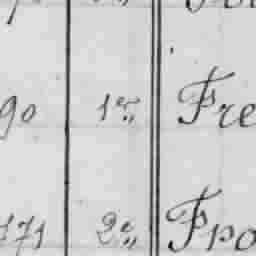 90 1er Fre
171 2e Fro